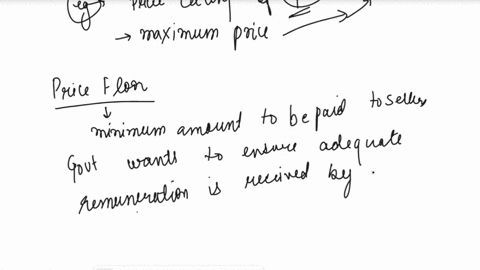 eg
→ maximum price
Price Floor
minimum amount to be paid to sellers
Govt wants to ensure adequate
remuneration is received by